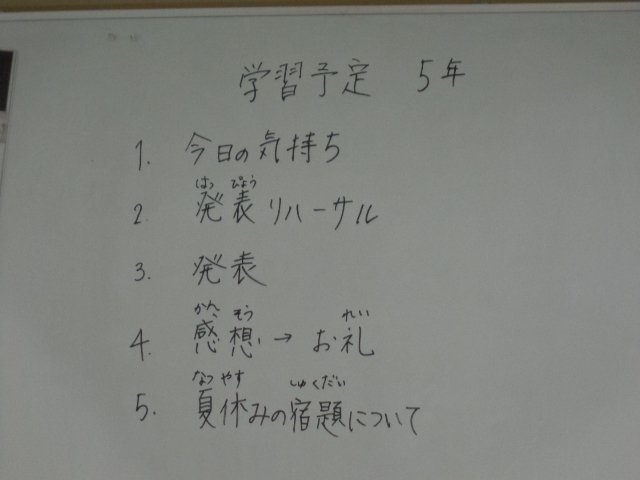 学習予定 5年
1. 今日の気持ち
はっ ぴょう
2. 発表リハーサル
3. 発表
かん そう れい
4. 感想→お礼
なつ やす しゅくだい
5. 夏休みの宿題について